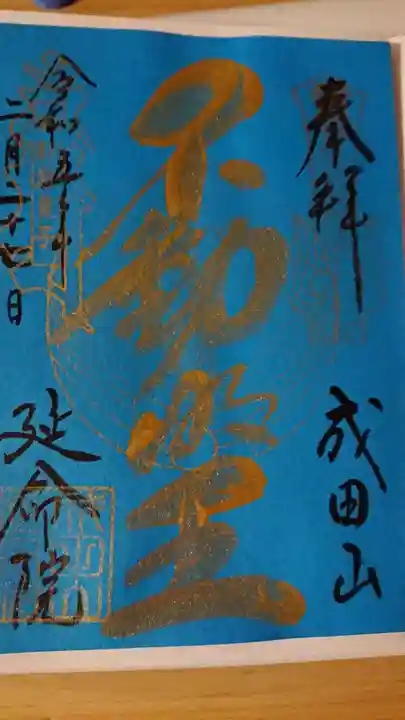 奉拝
成田山
不動明王
令和五年
二月二十七日
延命院